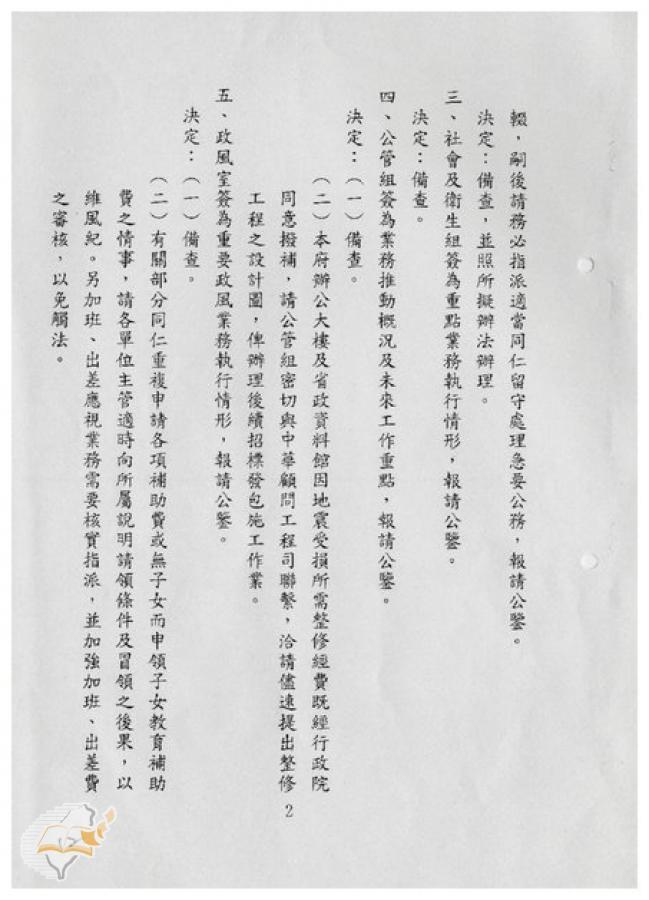 輟，嗣後請務必指派適當同仁留守處理急要公務，報請公鑒。
決定：備查，並照所擬辦法辦理。
三、社會及衛生組簽為重點業務執行情形，報請公鑒。
決定：備查。
四、公管組簽為業務推動概況及未來工作重點，報請公鑒。
決定：（一）備查。
（二）本府辦公大樓及省政資料館因地震受損所需整修經費既經行政院
同意撥補，請公管組密切與中華顧問工程司聯繫，洽請儘速提出整修
工程之設計圖，俾辦理後續招標發包施工作業。
五、政風室簽為重要政風業務執行情形，報請公鑒。
決定：（一）備查。
（二）有關部分同仁重複申請各項補助費或無子女而申領子女教育補助
費之情事，請各單位主管適時向所屬說明請領條件及冒領之後果，以
維風紀。另加班、出差應視業務需要核實指派，並加強加班、出差費
之審核，以免觸法。
2